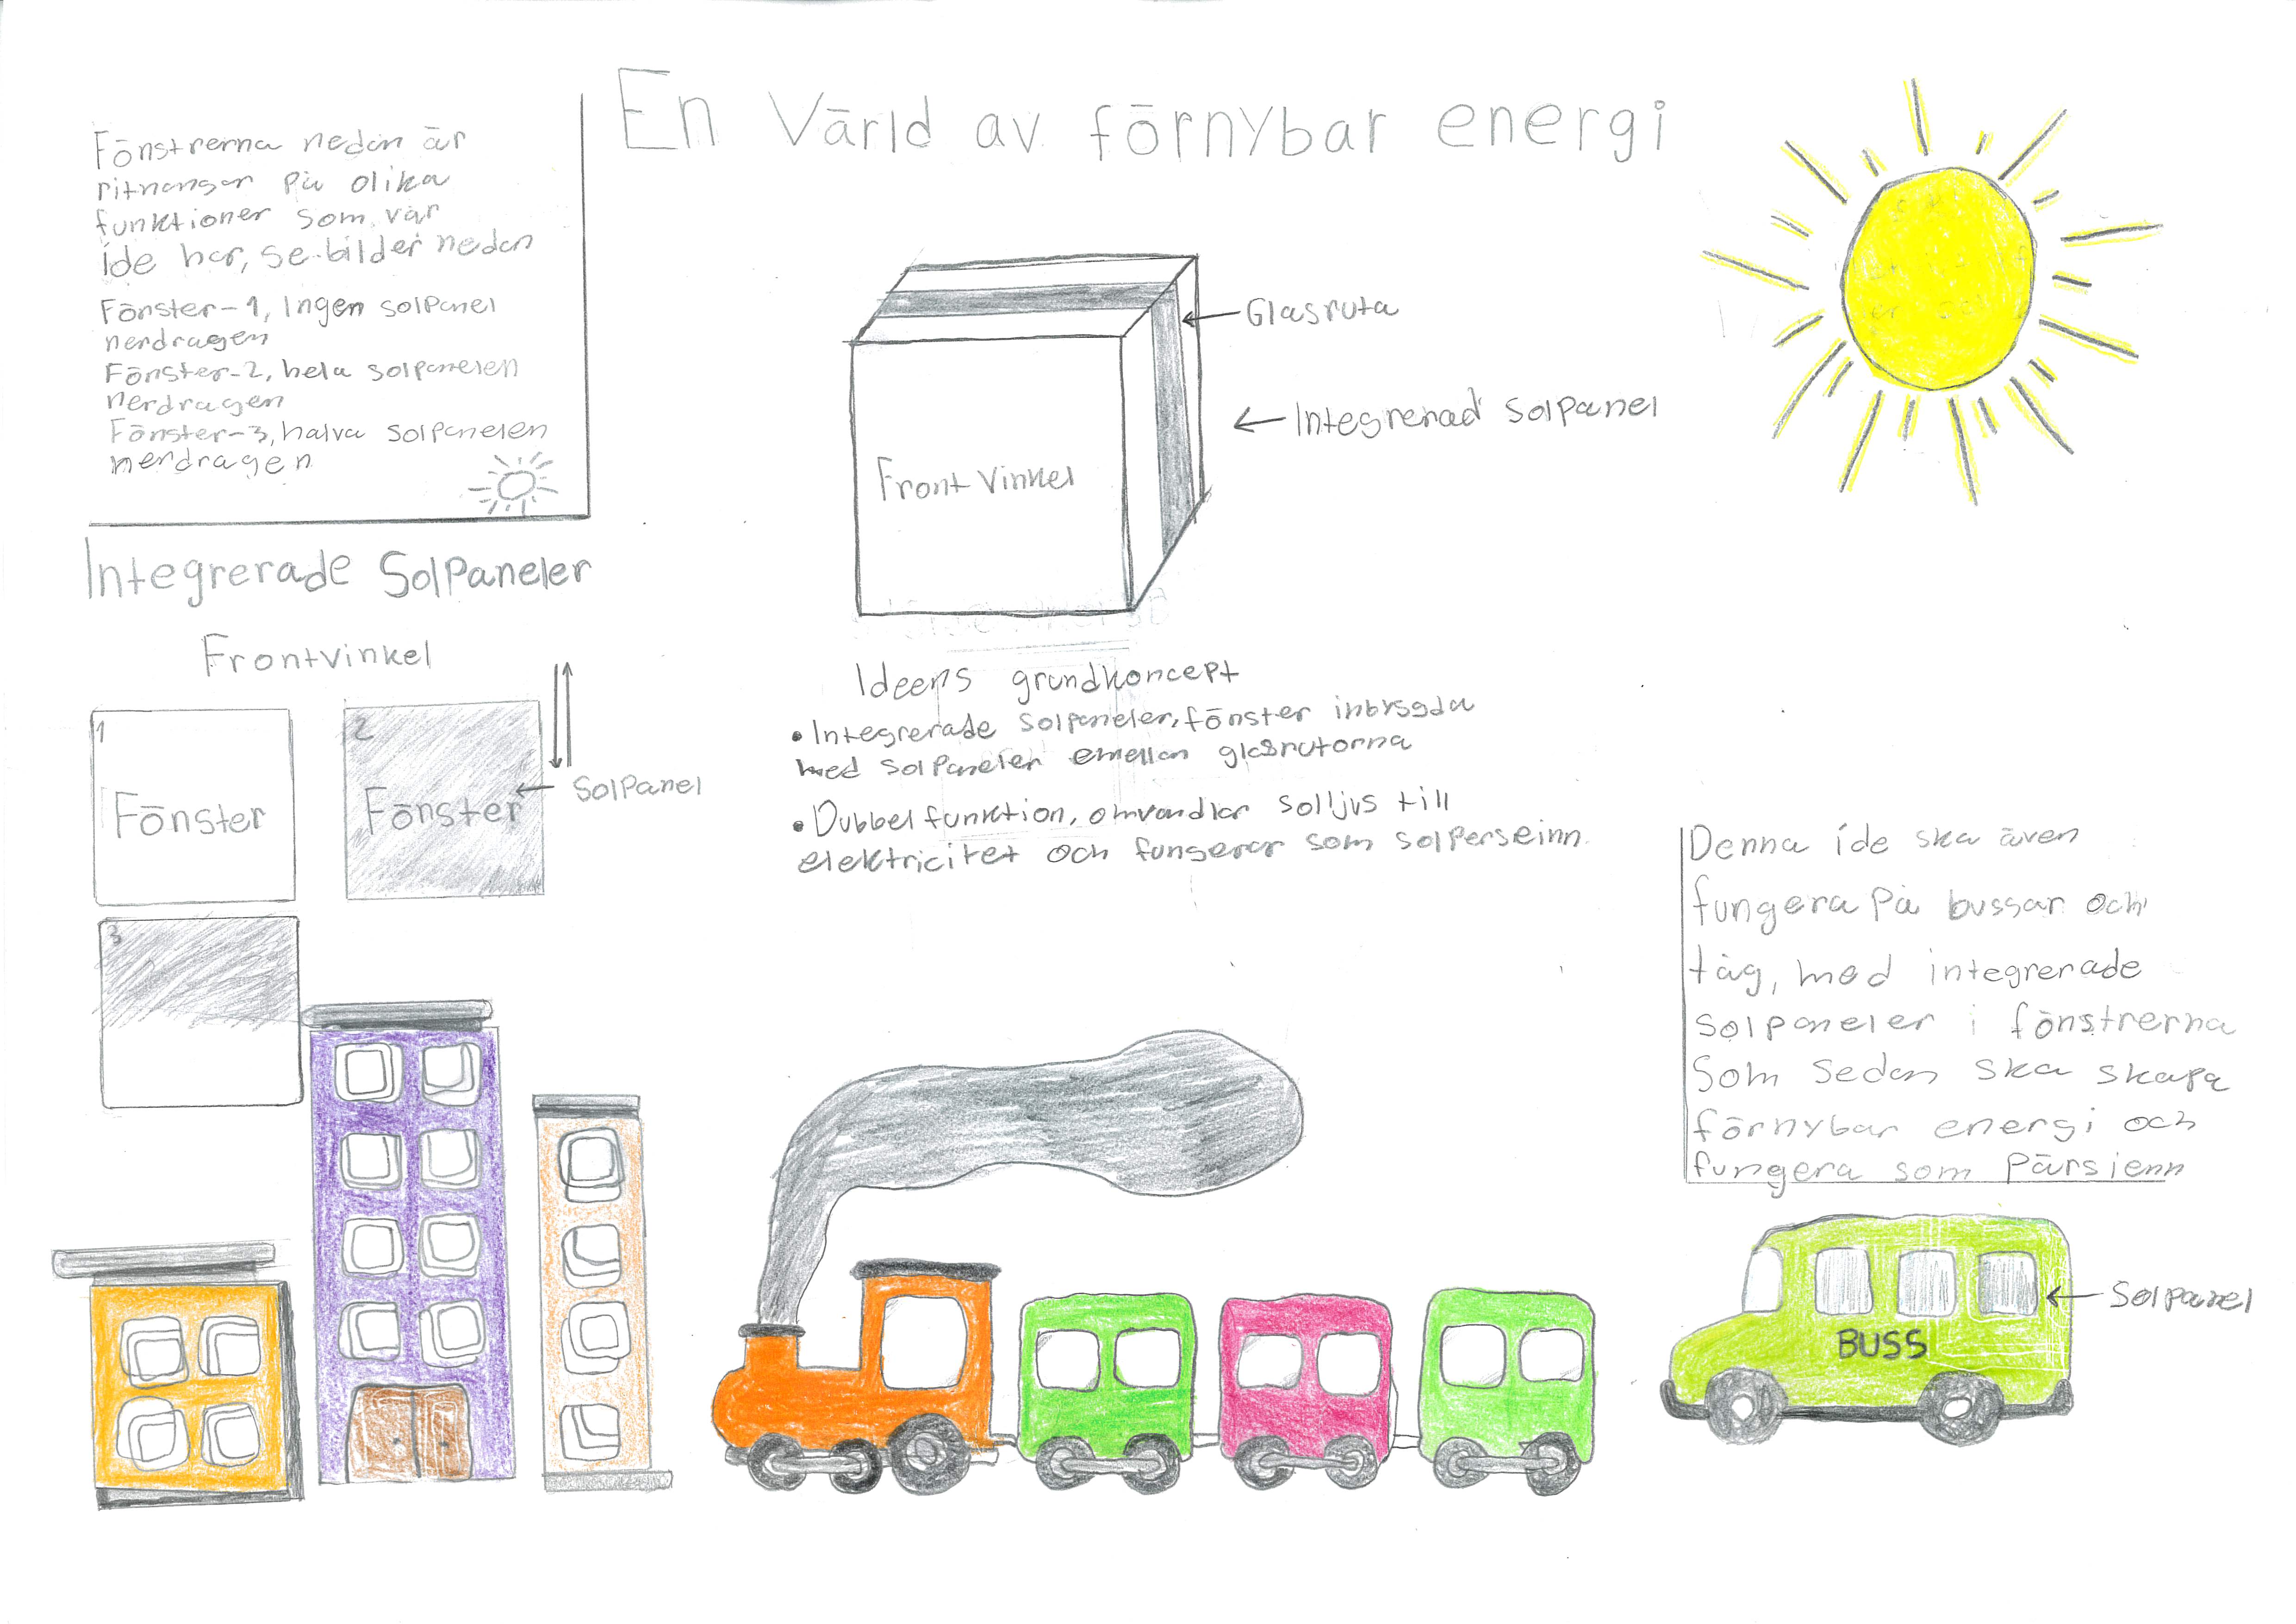 En Värld av förnybar energi
Fönstrerna nedan är
ritningar på olika
funktioner som vår
íde har, se bilder nedan
Fönster-1, Ingen solpanel
nerdragen
Fönster-2, hela solpanelen
nerdragen
Fönster-3, halva solpanelen
nerdragen
Glasruta
Integrerad Solpanel
Front Vinkel
Integrerade SolPaneler
Frontvinkel
1
Fönster
2
Fönster
SolPanel
3
Ideens grundkoncept
• Integrerade Solpaneler, fönster inbygda
med SolPaneler emellan glasrutorna
• Dubbelfunktion, omvandlar solljus till
elektricitet och fungerar som solperseinn.
Denna íde ska även
fungera på bussar och
tåg, med integrerade
solpaneler i fönstrerna
Som Sedan ska skapa
förnybar energi och
fungera som Pärsienn
Solpanel
BUSS